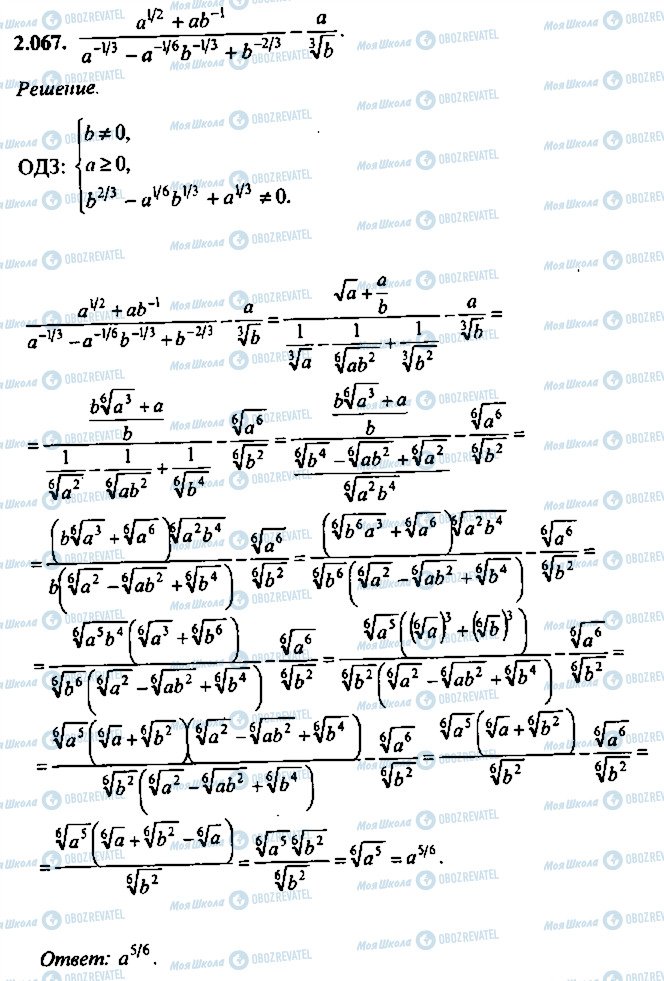 2.067. \frac{a^{1/2} + ab^{-1}}{a^{-1/3} - a^{-1/6}b^{-1/3} + b^{-2/3}} - \frac{a}{\sqrt[3]{b}}.
Решение.
ОДЗ: \begin{cases} b ≠ 0, \\ a ≥ 0, \\ b^{2/3} - a^{1/6}b^{1/3} + a^{1/3} ≠ 0. \end{cases}
\frac{a^{1/2} + ab^{-1}}{a^{-1/3} - a^{-1/6}b^{-1/3} + b^{-2/3}} - \frac{a}{\sqrt[3]{b}} = \frac{\sqrt{a} + \frac{a}{b}}{\frac{1}{\sqrt[3]{a}} - \frac{1}{\sqrt[6]{ab^2}} + \frac{1}{\sqrt[3]{b^2}}} - \frac{a}{\sqrt[3]{b}} =
= \frac{\frac{b\sqrt[6]{a^3} + a}{b}}{\frac{1}{\sqrt[6]{a^2}} - \frac{1}{\sqrt[6]{ab^2}} + \frac{1}{\sqrt[6]{b^4}}} - \frac{\sqrt[6]{a^6}}{\sqrt[6]{b^2}} = \frac{\frac{b\sqrt[6]{a^3} + a}{b}}{\frac{\sqrt[6]{b^4} - \sqrt[6]{ab^2} + \sqrt[6]{a^2}}{\sqrt[6]{a^2b^4}}} - \frac{\sqrt[6]{a^6}}{\sqrt[6]{b^2}} =
= \frac{(b\sqrt[6]{a^3} + \sqrt[6]{a^6})\sqrt[6]{a^2b^4}}{b(\sqrt[6]{a^2} - \sqrt[6]{ab^2} + \sqrt[6]{b^4})} - \frac{\sqrt[6]{a^6}}{\sqrt[6]{b^2}} = \frac{(\sqrt[6]{b^6a^3} + \sqrt[6]{a^6})\sqrt[6]{a^2b^4}}{\sqrt[6]{b^6}(\sqrt[6]{a^2} - \sqrt[6]{ab^2} + \sqrt[6]{b^4})} - \frac{\sqrt[6]{a^6}}{\sqrt[6]{b^2}} =
= \frac{\sqrt[6]{a^5b^4}(\sqrt[6]{a^3} + \sqrt[6]{b^6})}{\sqrt[6]{b^6}(\sqrt[6]{a^2} - \sqrt[6]{ab^2} + \sqrt[6]{b^4})} - \frac{\sqrt[6]{a^6}}{\sqrt[6]{b^2}} = \frac{\sqrt[6]{a^5}((\sqrt[6]{a})^3 + (\sqrt[6]{b})^3)}{\sqrt[6]{b^2}(\sqrt[6]{a^2} - \sqrt[6]{ab^2} + \sqrt[6]{b^4})} - \frac{\sqrt[6]{a^6}}{\sqrt[6]{b^2}} =
= \frac{\sqrt[6]{a^5}(\sqrt[6]{a} + \sqrt[6]{b^2})(\sqrt[6]{a^2} - \sqrt[6]{ab^2} + \sqrt[6]{b^4})}{\sqrt[6]{b^2}(\sqrt[6]{a^2} - \sqrt[6]{ab^2} + \sqrt[6]{b^4})} - \frac{\sqrt[6]{a^6}}{\sqrt[6]{b^2}} = \frac{\sqrt[6]{a^5}(\sqrt[6]{a} + \sqrt[6]{b^2})}{\sqrt[6]{b^2}} - \frac{\sqrt[6]{a^6}}{\sqrt[6]{b^2}} =
= \frac{\sqrt[6]{a^5}(\sqrt[6]{a} + \sqrt[6]{b^2} - \sqrt[6]{a})}{\sqrt[6]{b^2}} = \frac{\sqrt[6]{a^5}\sqrt[6]{b^2}}{\sqrt[6]{b^2}} = \sqrt[6]{a^5} = a^{5/6}.
Ответ: a^{5/6}.